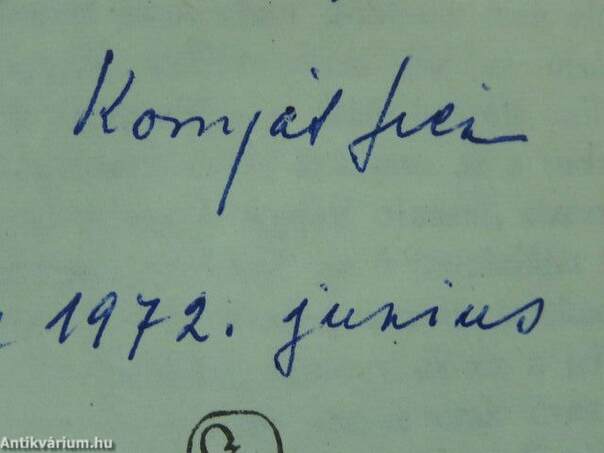 Komját Irén
1972. junius
Antikvárium.hu